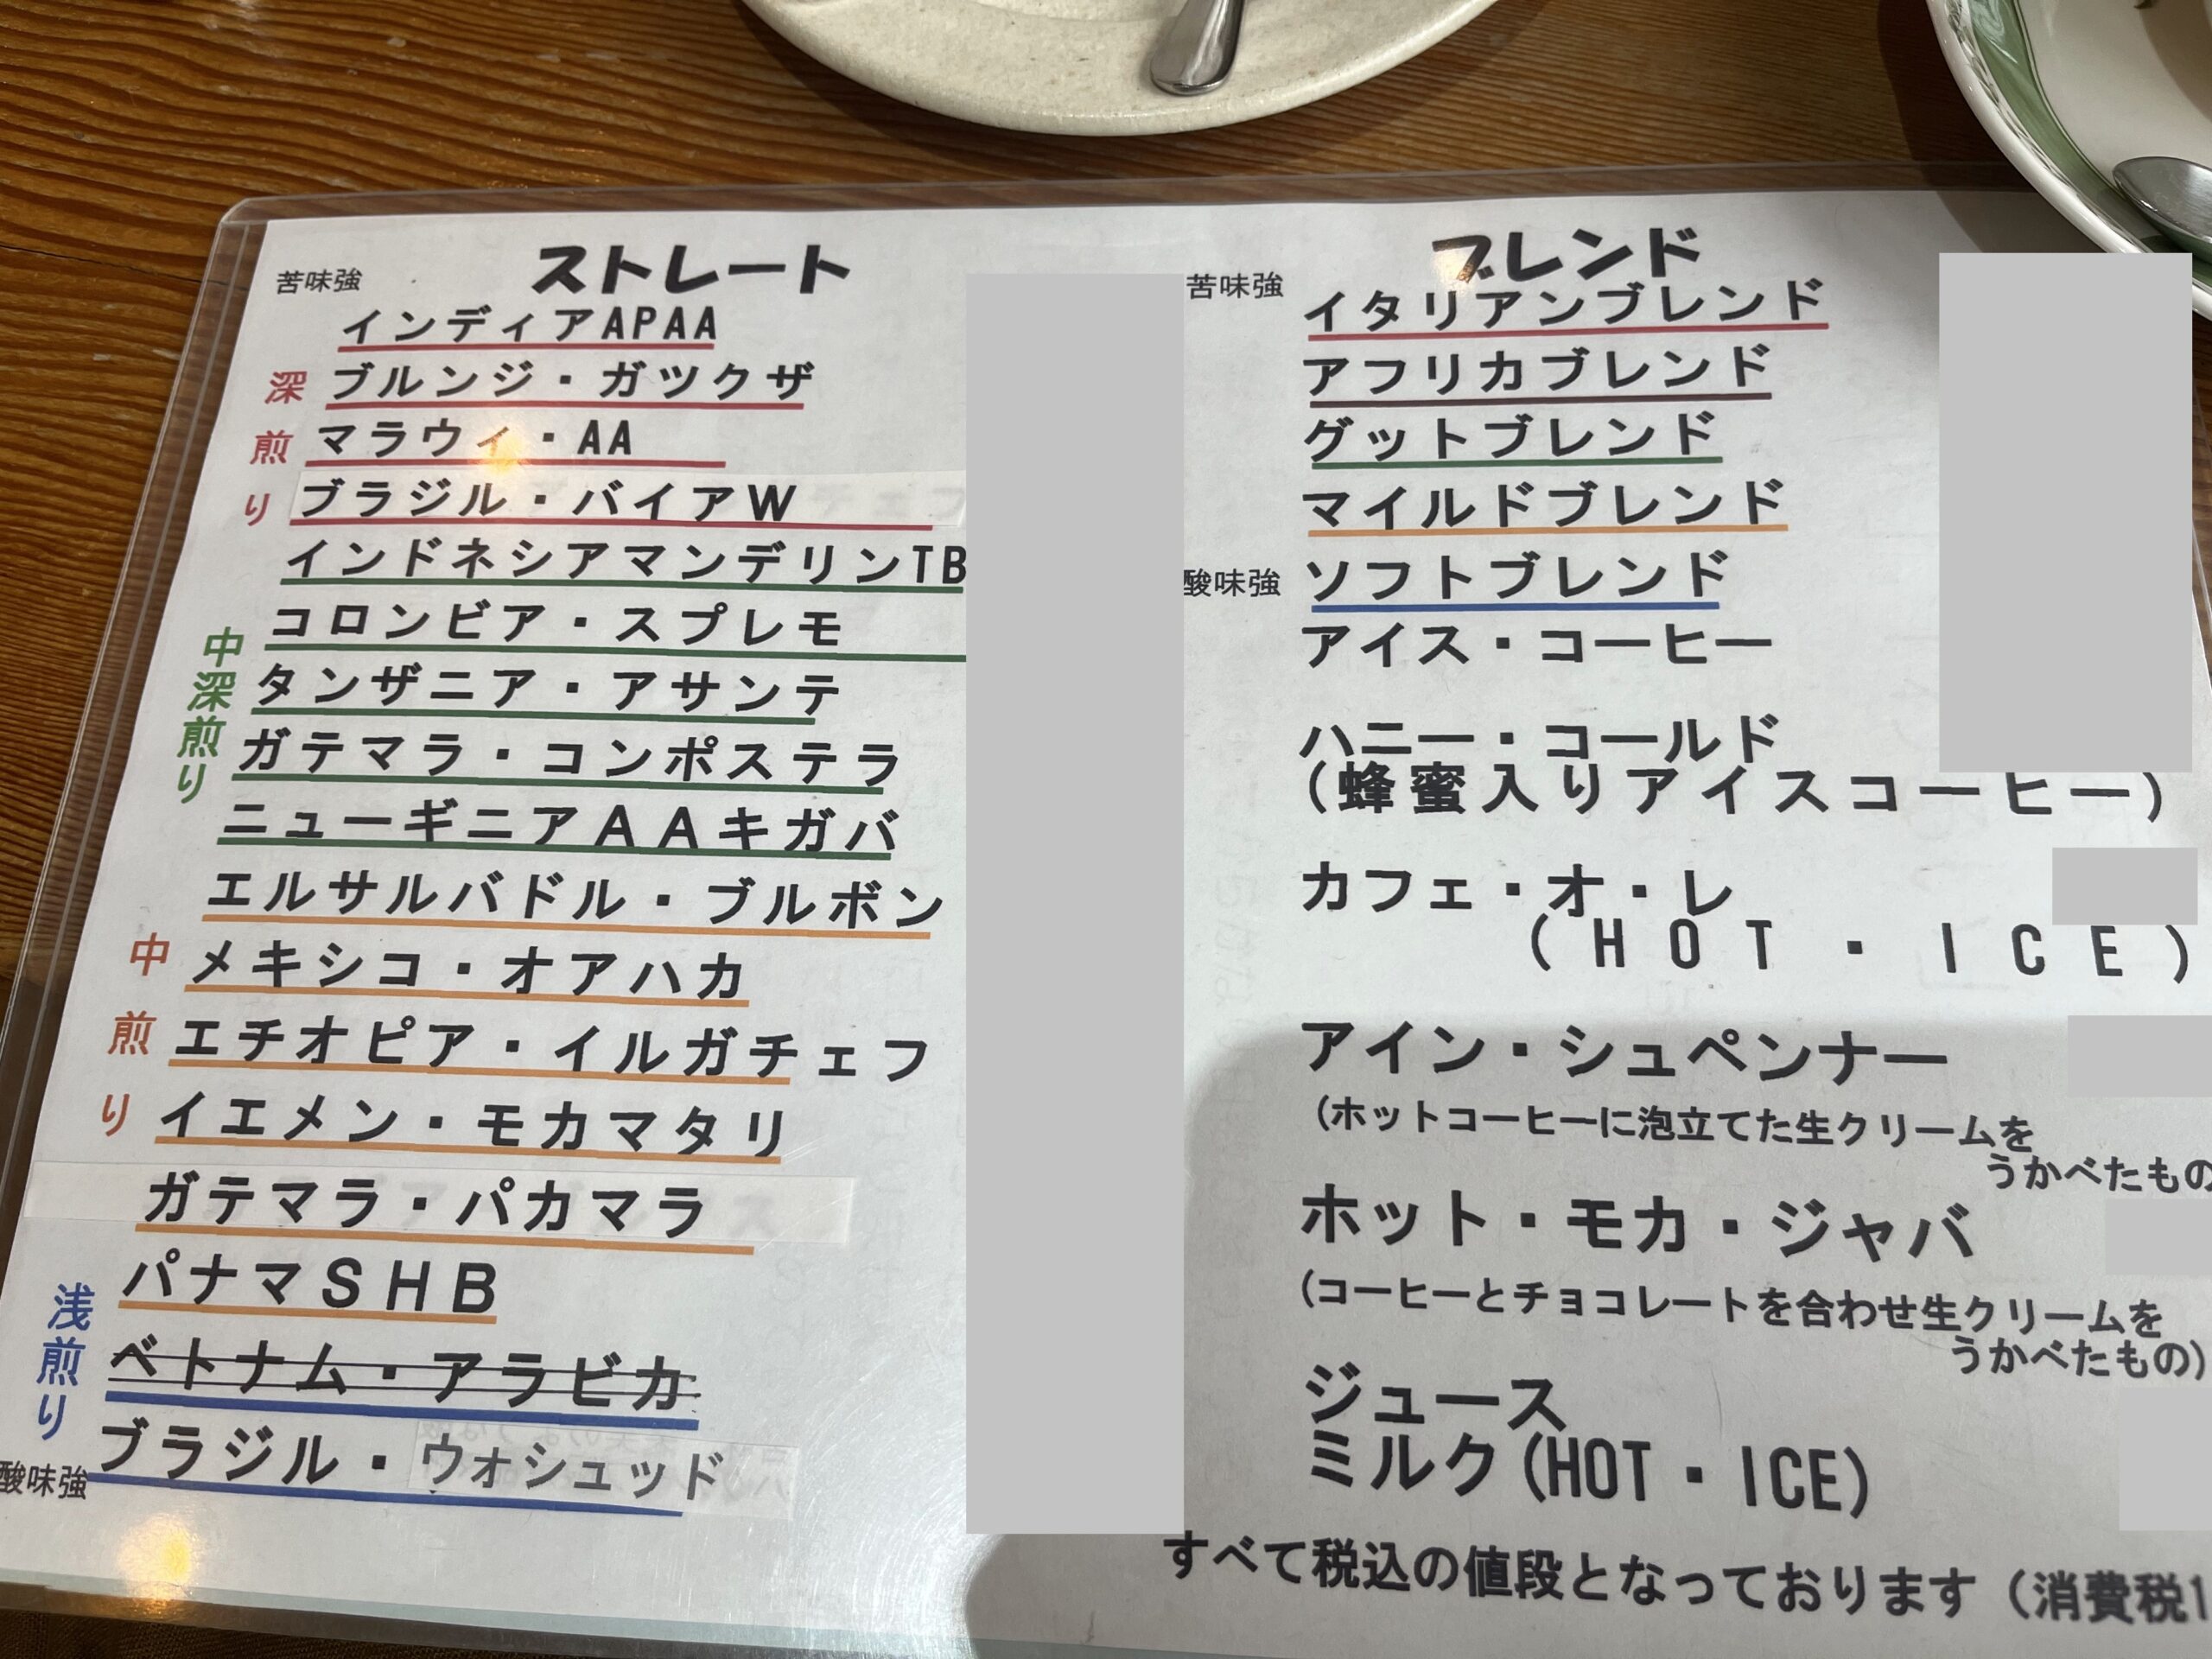 ストレート
苦味強
インディアAPAA
深煎り
ブルンジ・ガツクザ
マラウィ・AA
ブラジル・バイアW
インドネシアマンデリンTB
中深煎り
コロンビア・スプレモ
タンザニア・アサンテ
ガテマラ・コンポステラ
ニューギニアAAキガバ
エルサルバドル・ブルボン
中煎り
メキシコ・オアハカ
エチオピア・イルガチェフ
イエメン・モカマタリ
ガテマラ・パカマラ
パナマSHB
浅煎り
ベトナム・アラビカ
ブラジル・ウォシュッド
酸味強
ブレンド
苦味強
イタリアンブレンド
アフリカブレンド
グットブレンド
マイルドブレンド
酸味強
ソフトブレンド
アイス・コーヒー
ハニー・コールド
(蜂蜜入りアイスコーヒー)
カフェ・オ・レ
(HOT・ICE)
アイン・シュペンナー
(ホットコーヒーに泡立てた生クリームを
うかべたもの
ホット・モカ・ジャバ
(コーヒーとチョコレートを合わせ生クリームを
うかべたもの)
ジュース
ミルク(HOT・ICE)
すべて税込の値段となっております(消費税1